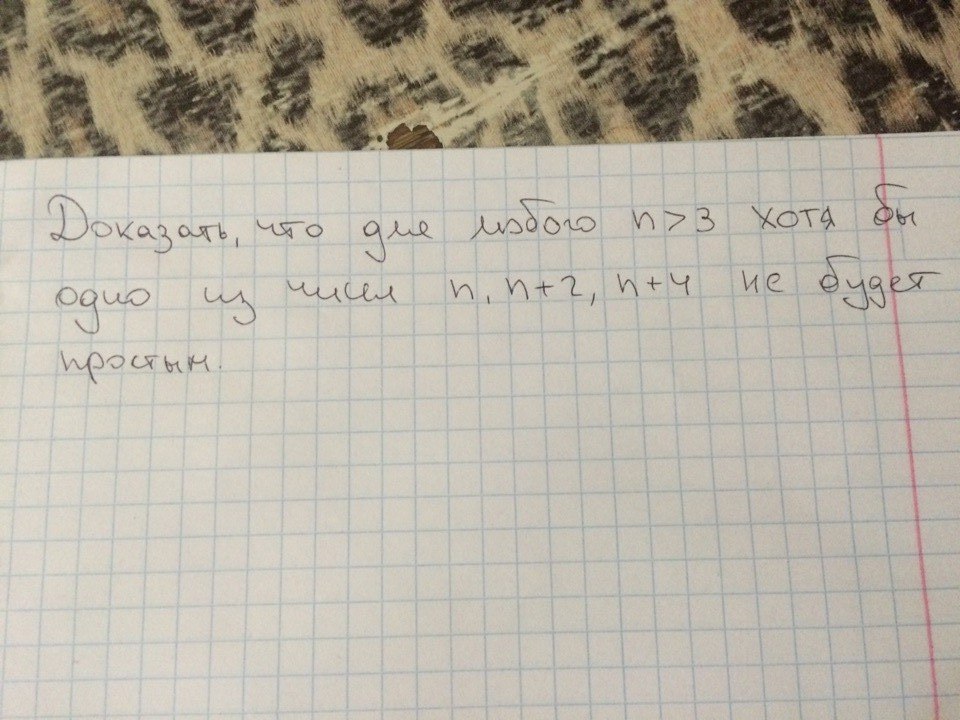 Доказать, что для любого n > 3 хотя бы
одно из чисел n, n+2, n+4 не будет
простым.